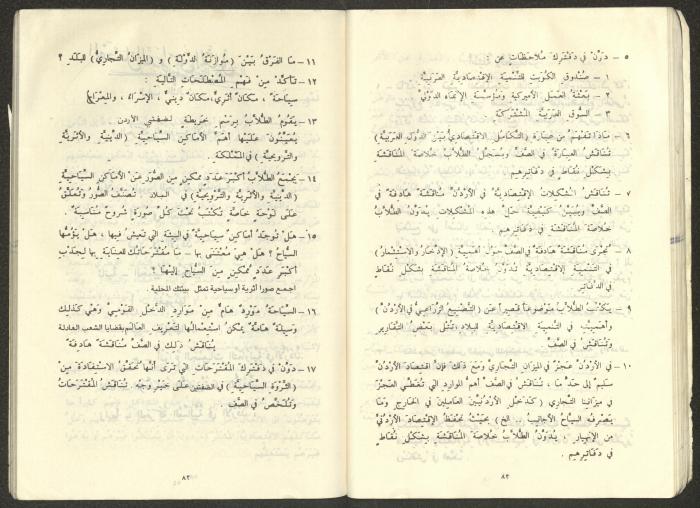 ٥ – دَوِّنْ في دفترك ملاحظات عن :
١ – صندوق الكويت للتنمية الإقتصادية العربية
٢ – بعثة العمل الأميركية ومؤسسة الإنماء الدولي
٣ – السوق العربية المشتركة
٦ – ماذا تفهم من عبارة (التكامل الاقتصادي بين الدول العربية)
تناقش العبارة في الصف وتسجل الطلاب خلاصة المناقشة
بشكل نقاط في دفاترهم
٧ – تناقش المشكلات الإقتصادية في الأردن مناقشة هادفة في
الصف وتبين كيفية حل هذه المشكلات . يدون الطلاب
خلاصة المناقشة في دفاترهم
٨ – تجرى مناقشة هادفة في الصف حول أهمية (الإدخار والاستثمار)
في التنمية الاقتصادية تدون خلاصة المناقشة بشكل نقاط
في الدفاتر
٩ – يكتب الطلاب موضوعاً قصيراً عن (التصنيع الزراعي في الأردن)
وأهميته في التنمية الاقتصادية للبلاد تتلى بعض التقارير
وتناقش في الصف
١٠ – في الأردن عجز في الميزان التجاري ومع ذلك فإن اقتصاد الأردن
سليم إلى حد ما ، تناقش في الصف أهم الموارد التي تغطي العجز
في ميزاننا التجاري (كدخل الأردنيين العاملين في الخارج وما
يصرفه السياح الأجانب ... الخ) بحيث تحفظ الإقتصاد الأردني
من الإنهيار . يدون الطلاب خلاصة المناقشة بشكل نقاط
في دفاترهم .
٨٢
١١ – ما الفرق بين (موازنة الدولة) و (الميزان التجاري) للبلد ؟
١٢ – تأكد من فهم المصطلحات التالية :
سياحة ، مكان أثري ، مكان ديني ، الإسراء ، والمعراج
١٣ – يقوم الطلاب برسم خريطة لضفتي الأردن
يعينون عليها أهم الأماكن السياحية (الدينية والأثرية
والترويحية) في المملكة .
١٤ – يجمع الطلاب أكبر عدد ممكن من الصور عن الأماكن السياحية
(الدينية والأثرية والترويحية) في البلاد . تصنف الصور وتعلق
على لوحة خاصة تكتب تحت كل صورة شروح مناسبة .
١٥ – هل توجد أماكن سياحية في البيئة التي تعيش فيها ، هل يؤمها
السياح ؟ هل هي معتنى بها – ما مقترحاتك للعناية بها لجذب
أكبر عدد ممكن من السياح إليها ؟
اجمع صورا اثرية أو سياحية تمثل بيئتك المحلية .
١٦ – السياحة مورد هام من موارد الدخل القومي وهي كذلك
وسيلة هامة يمكن استعمالها لتعريف العالم بقضايا الشعب العادلة
يناقش ذلك في الصف مناقشة هادفة
١٧ – دَوِّنْ في دفترك المقترحات التي ترى أنها تحقق الاستفادة من
(الثروة السياحية) في الضفتين على خير وجه . تناقش المقترحات
وتلخص في الصف
٨٣